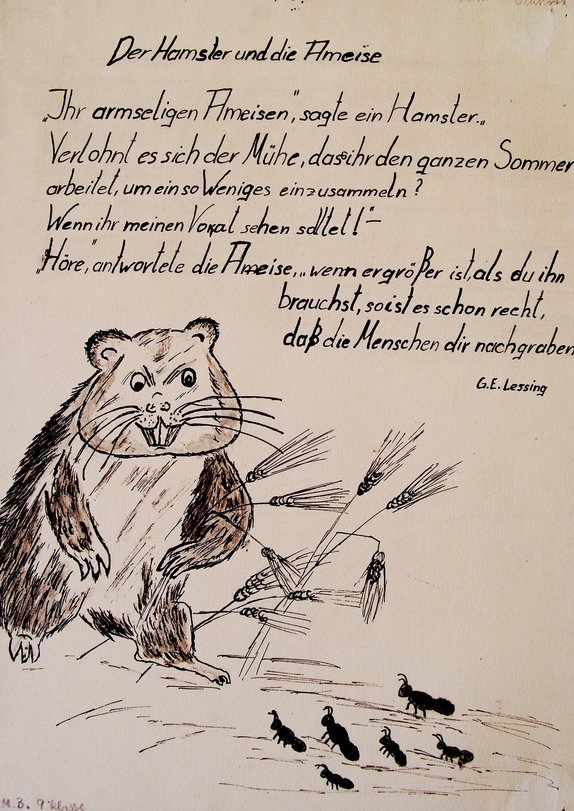 Der Hamster und die Ameise
„Ihr armseligen Ameisen", sagte ein Hamster.„
Verlohnt es sich der Mühe, dass ihr den ganzen Sommer
arbeitet, um ein so Weniges einzusammeln?
Wenn ihr meinen Vorrat sehen solltet!"–
„Höre," antwortete die Ameise, „wenn er größer ist, als du ihn
brauchst, so ist es schon recht,
daß die Menschen dir nachgraben
G.E. Lessing
M.B. 9 Klasse